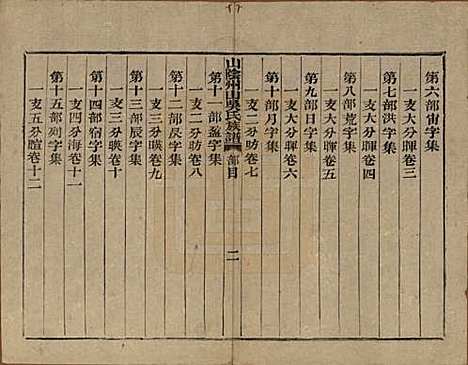 第六部宙字集
一支大分暉卷三
第七部洪字集
一支大分暉卷四
第八部荒字集
一支大分暉卷五
第九部日字集
一支大分暉卷六
第十部月字集
一支二分昉卷七
山陰州山吳氏族譜 部目 二
第十一部盈字集
一支二分昉卷八
第十二部昃字集
一支三分暎卷九
第十三部辰字集
一支三分暎卷十
第十四部宿字集
一支四分海卷十一
第十五部列字集
一支五分暄卷十二